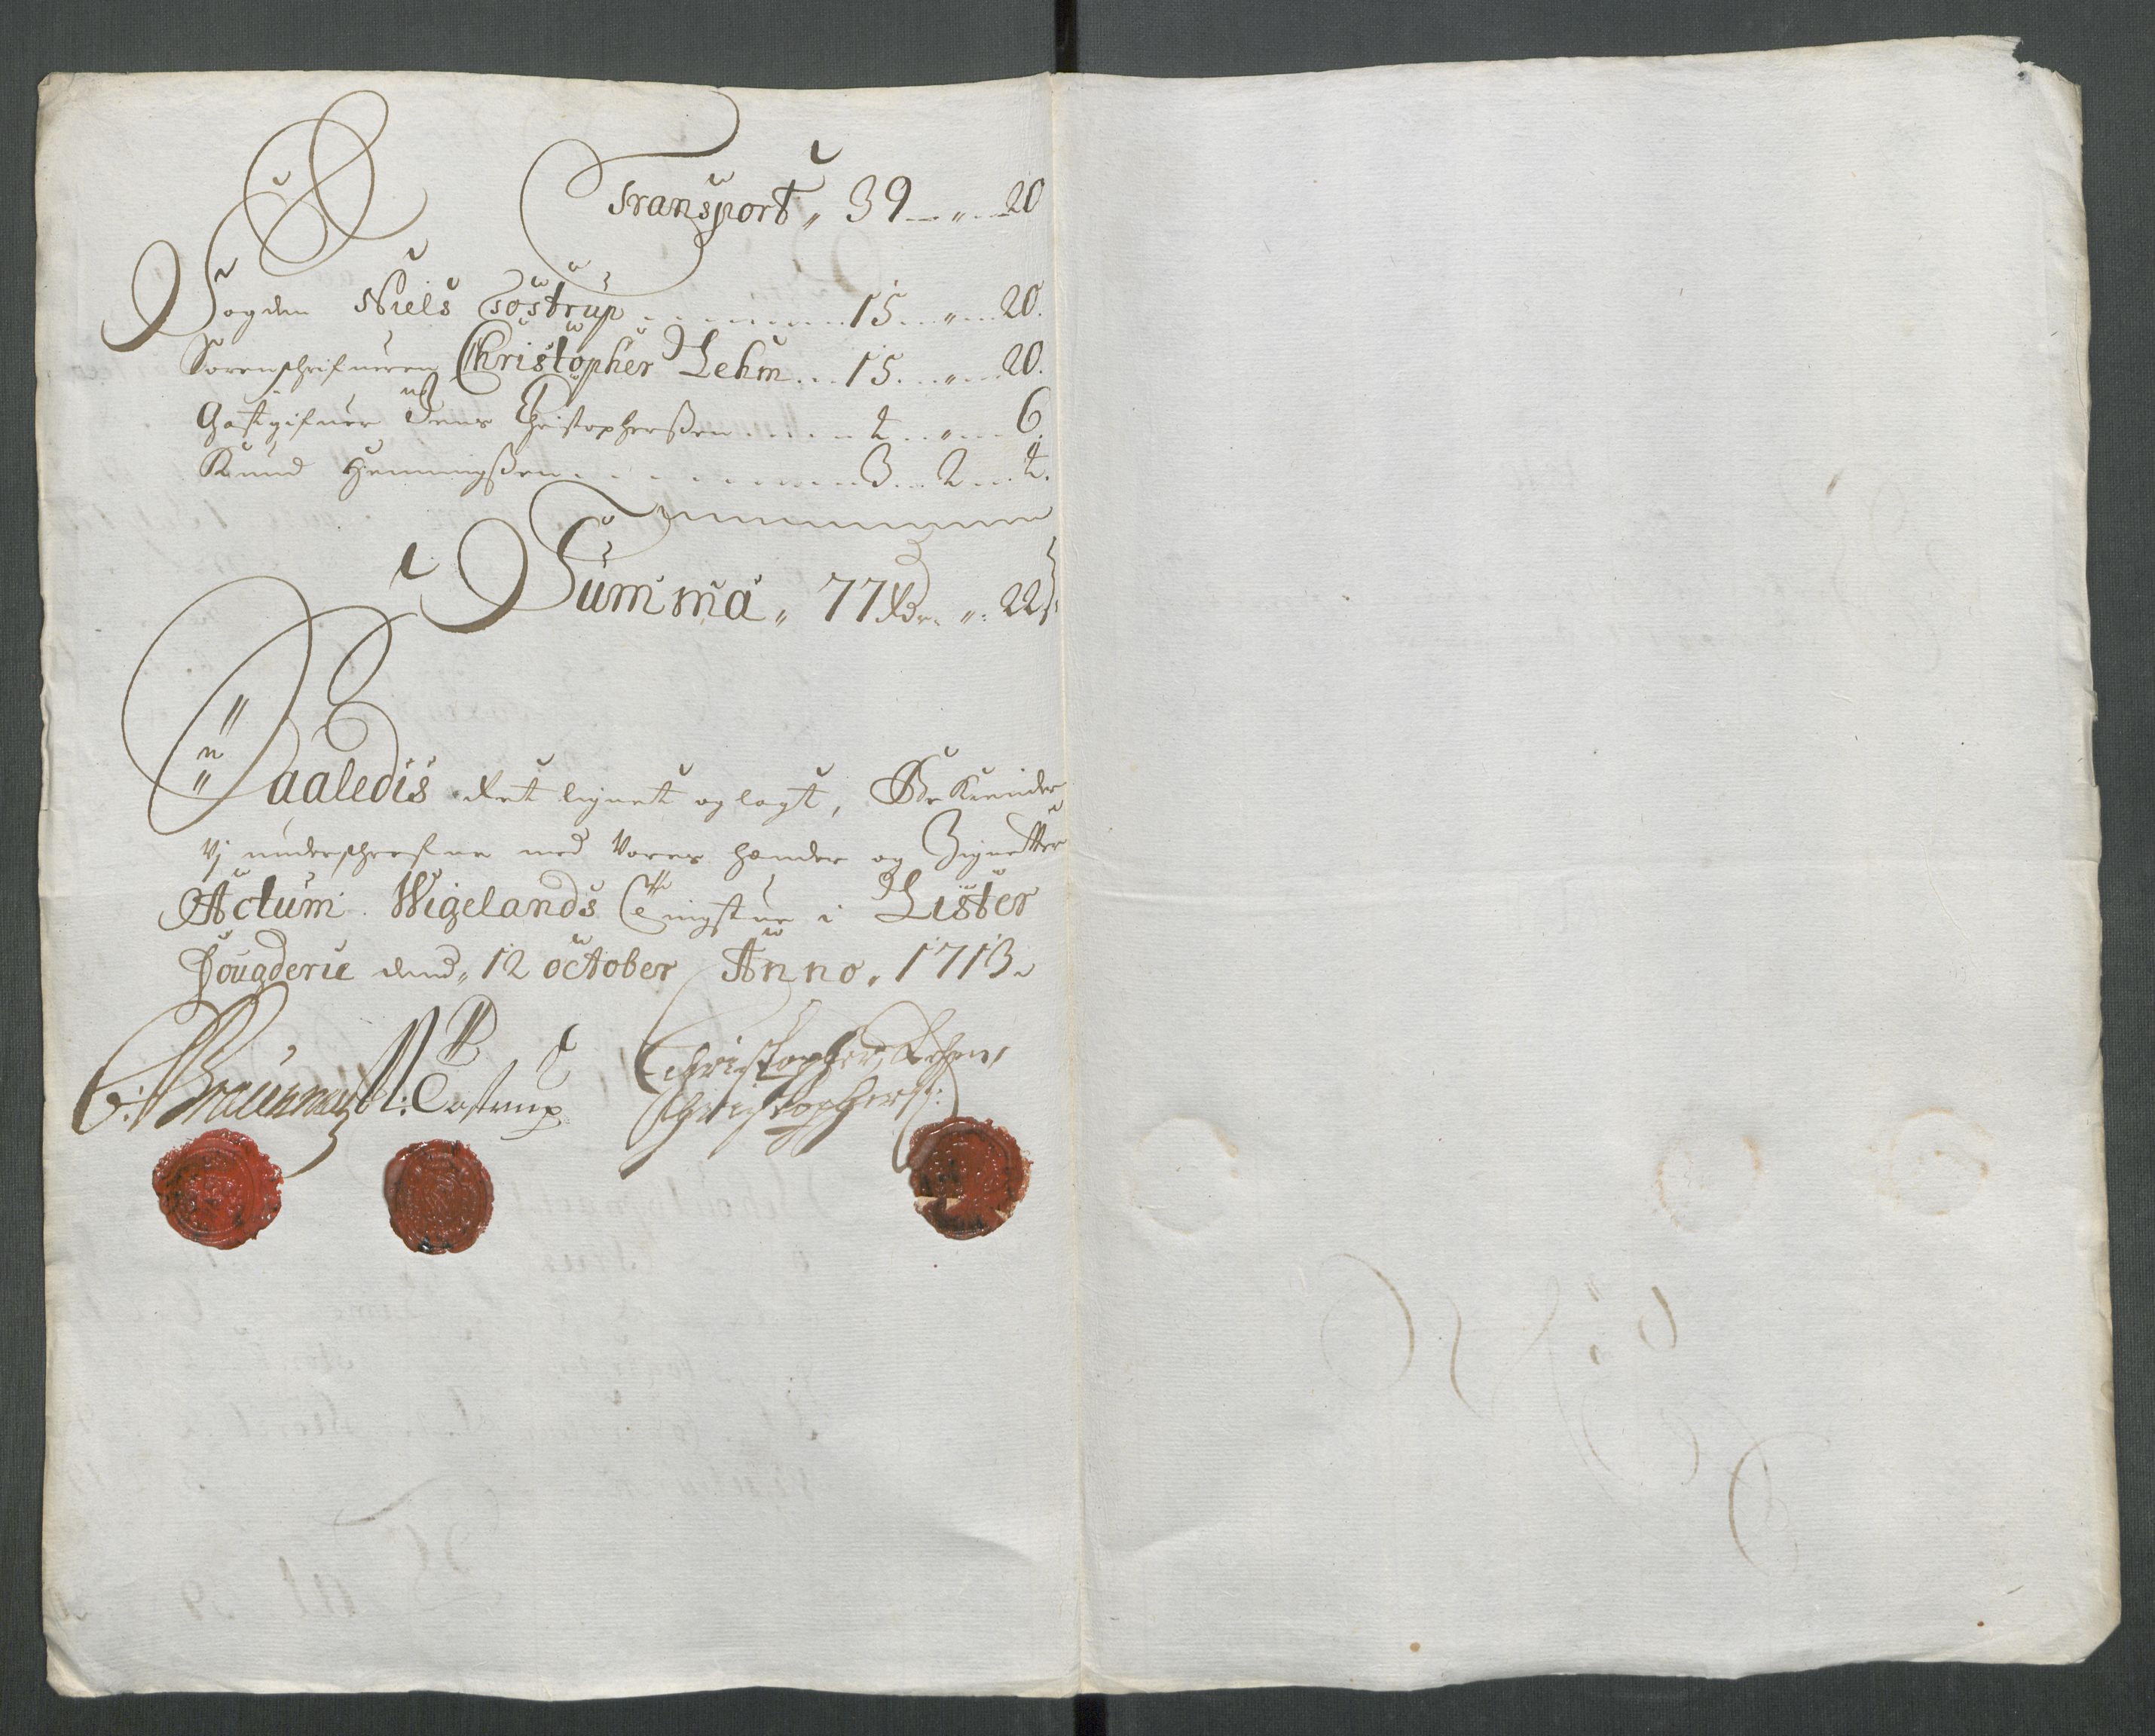 Transport „ 39 „ 20
Fogden Niels Tostrup 15 „ 20.
Sorenschrifueren Christopher Lehm 15 „ 20.
Gastgifuer Jens Christopherßen 4 „ 6.
Knud Hemmingßen 3 2 4.
Summa „ 77 Rdr. „: 22 s:
Saaledis Ret lignet og lagt, Be Kiender
Vj underschrefne med Vores hænder og Zignetter
Actum Wigelands Tingstue i Lister
Fougderie dend „ 12 October Anno „ 1713.
N: Tostrup
Christopher Lehm,
Christophers: